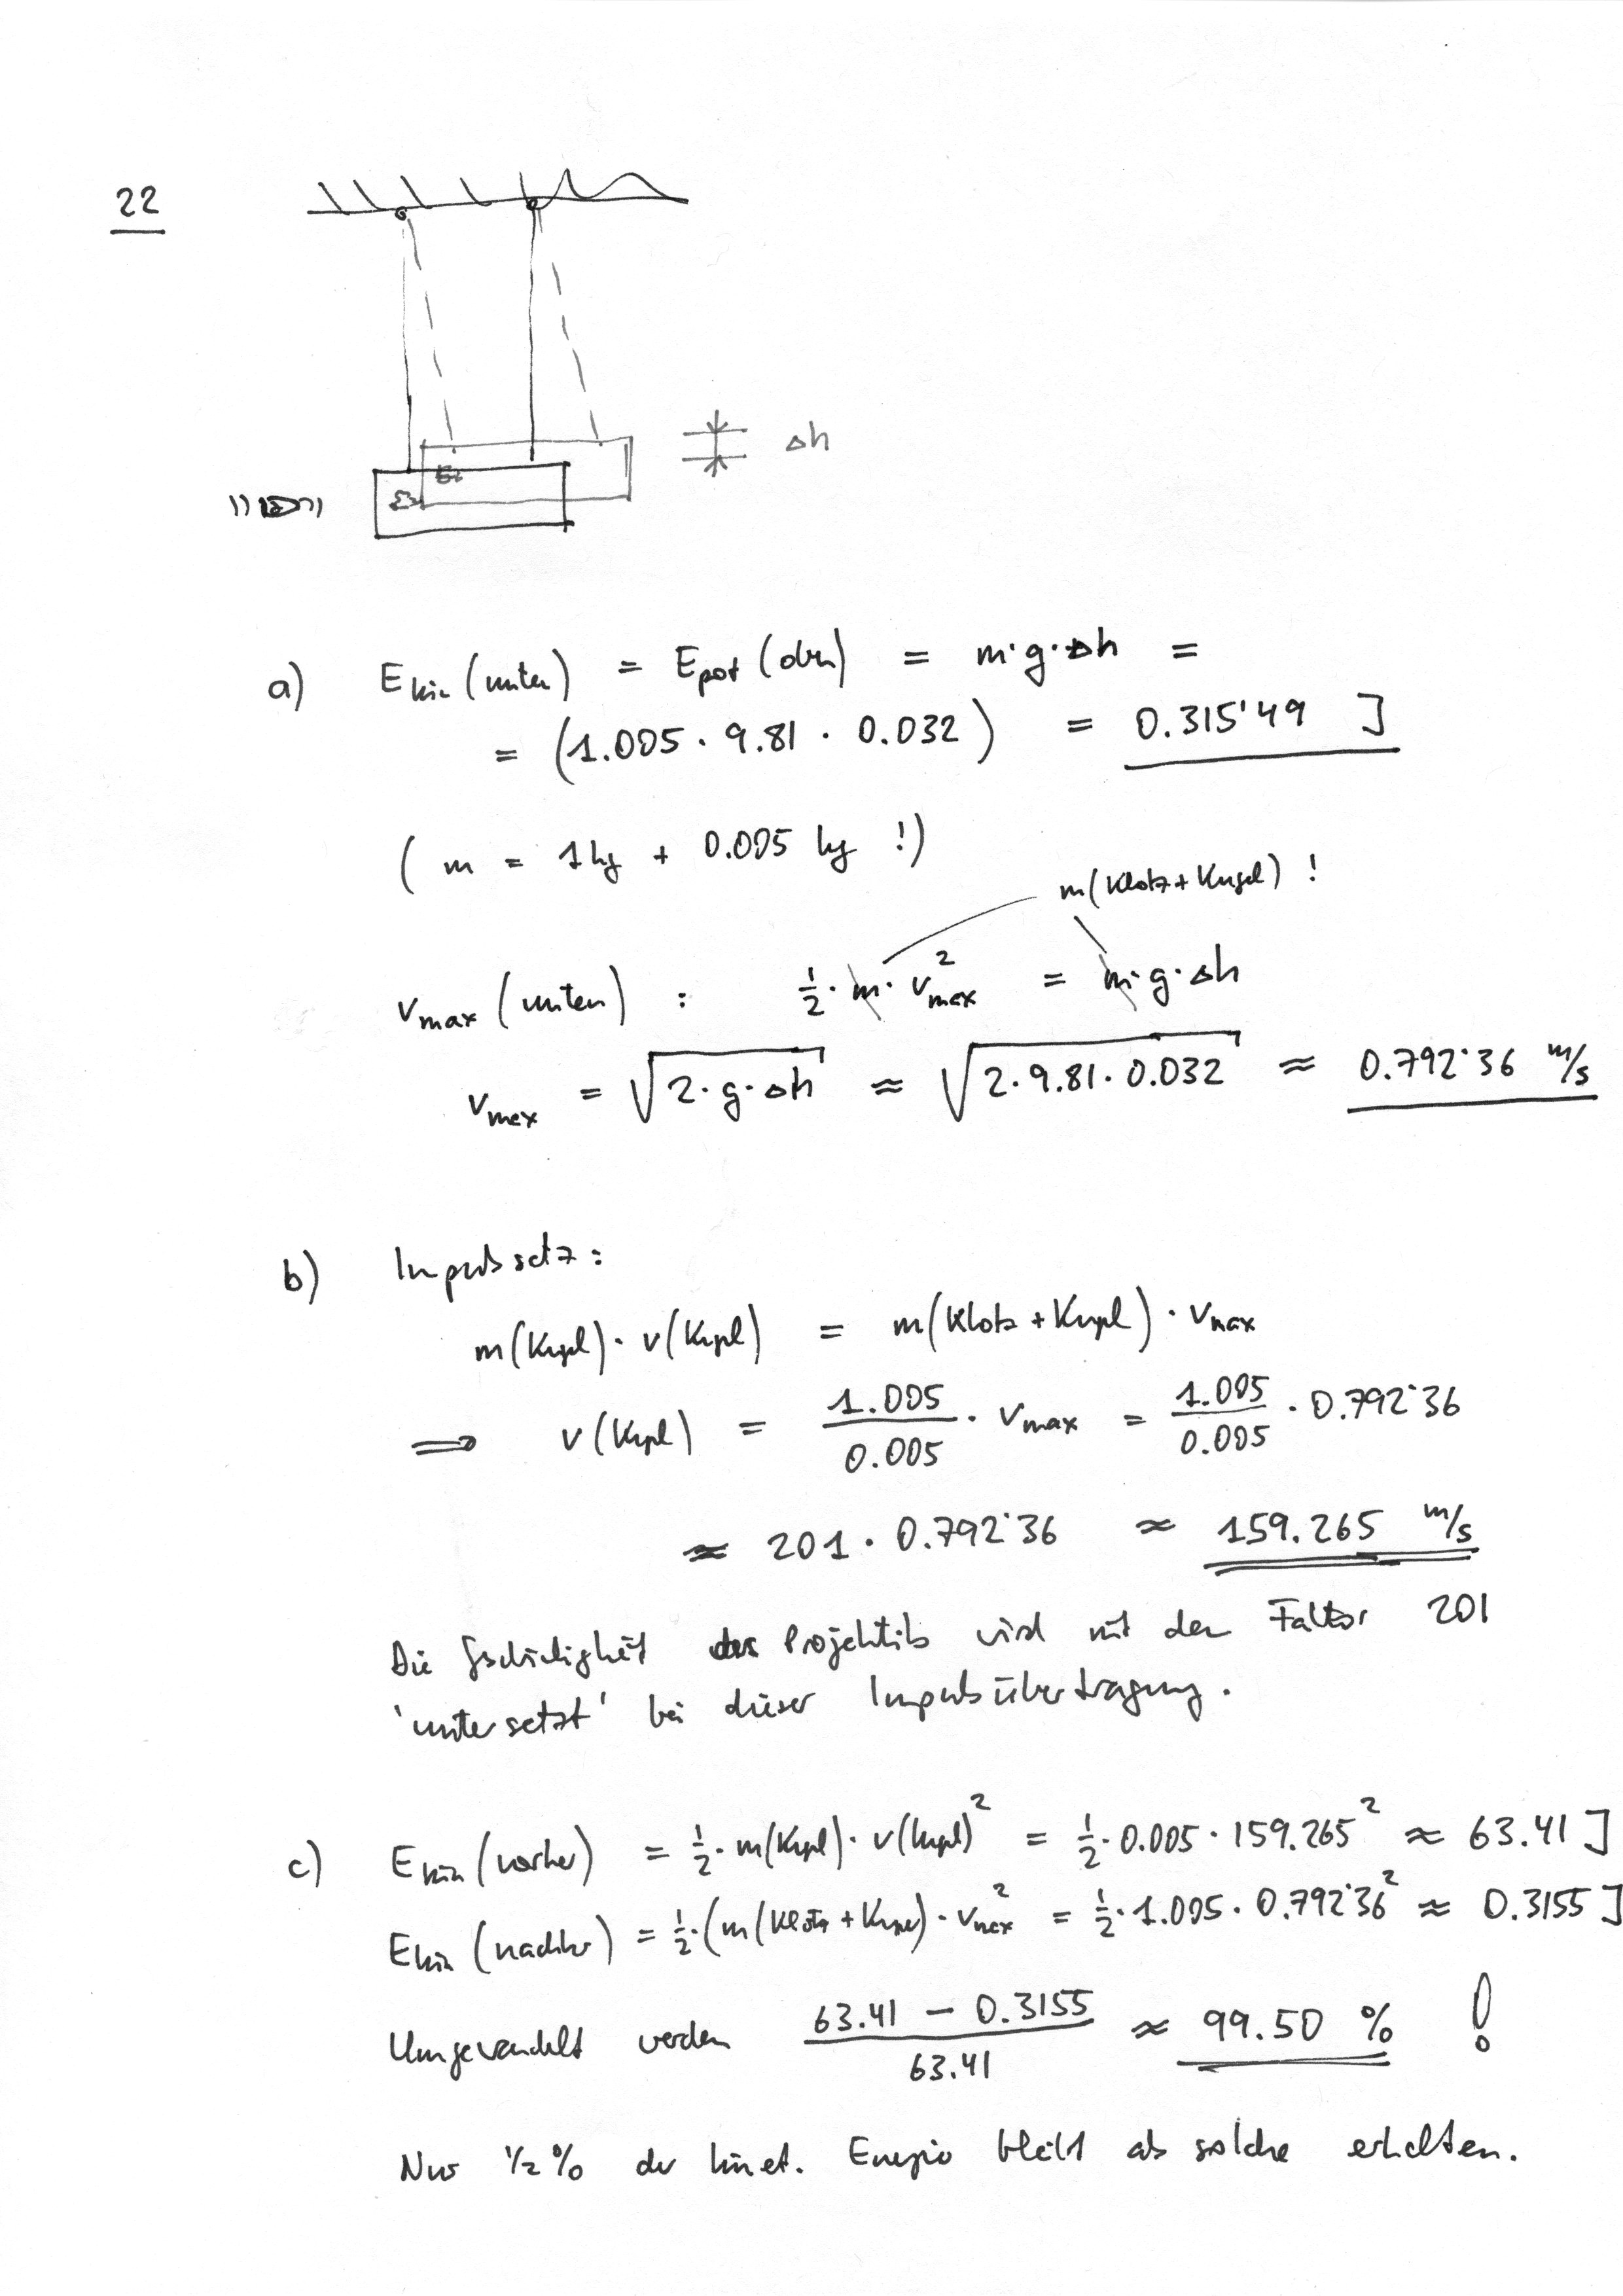 22
Δh
a) E kin (unten) = E pot (oben) = m·g·Δh =
= (1.005 · 9.81 · 0.032) = 0.315'49 J
( m = 1 kg + 0.005 kg !)
m(Klotz+Kugel) !
v max (unten) : 1/2 · m · v max ² = m·g·Δh
v max = √2·g·Δh ≈ √2·9.81·0.032 ≈ 0.792'36 m/s
b) Impulssatz:
m(Kugel) · v(Kugel) = m(Klotz+Kugel) · v max
⟹ v(Kugel) = 1.005/0.005 · v max = 1.005/0.005 · 0.792'36
≈ 201 · 0.792'36 ≈ 159.265 m/s
Die Geschwindigkeit des Projektils wird mit dem Faktor 201
'untersetzt' bei dieser Impulsübertragung.
c) E kin (vorher) = 1/2 · m(Kugel) · v(Kugel)² = 1/2 · 0.005 · 159.265² ≈ 63.41 J
E kin (nachher) = 1/2 · (m(Klotz+Kugel) · v max ² = 1/2 · 1.005 · 0.792'36² ≈ 0.3155 J
Umgewandelt werden (63.41 − 0.3155)/63.41 ≈ 99.50 % !
Nur 1/2 % der kinet. Energie bleibt als solche erhalten.